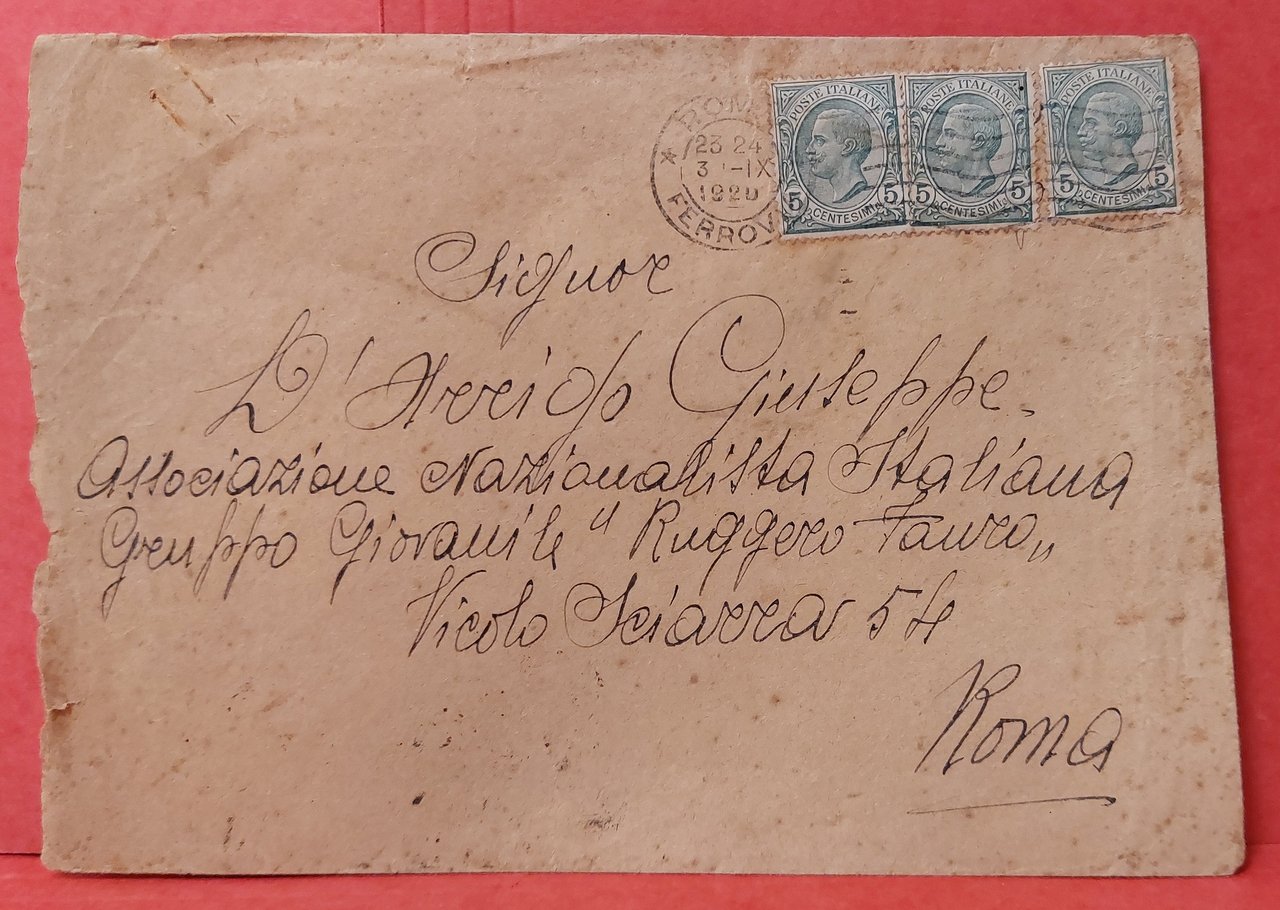 ROMA
23 24
3 -IX
1920
FERROV
POSTE ITALIANE
5 CENTESIMI 5
POSTE ITALIANE
5 CENTESIMI 5
POSTE ITALIANE
5 CENTESIMI 5
Signor
D'Arrigo Giuseppe.
Associazione Nazionalista Italiana
Gruppo Giovanile "Ruggero Fauro„
Vicolo Sciarra 54
Roma